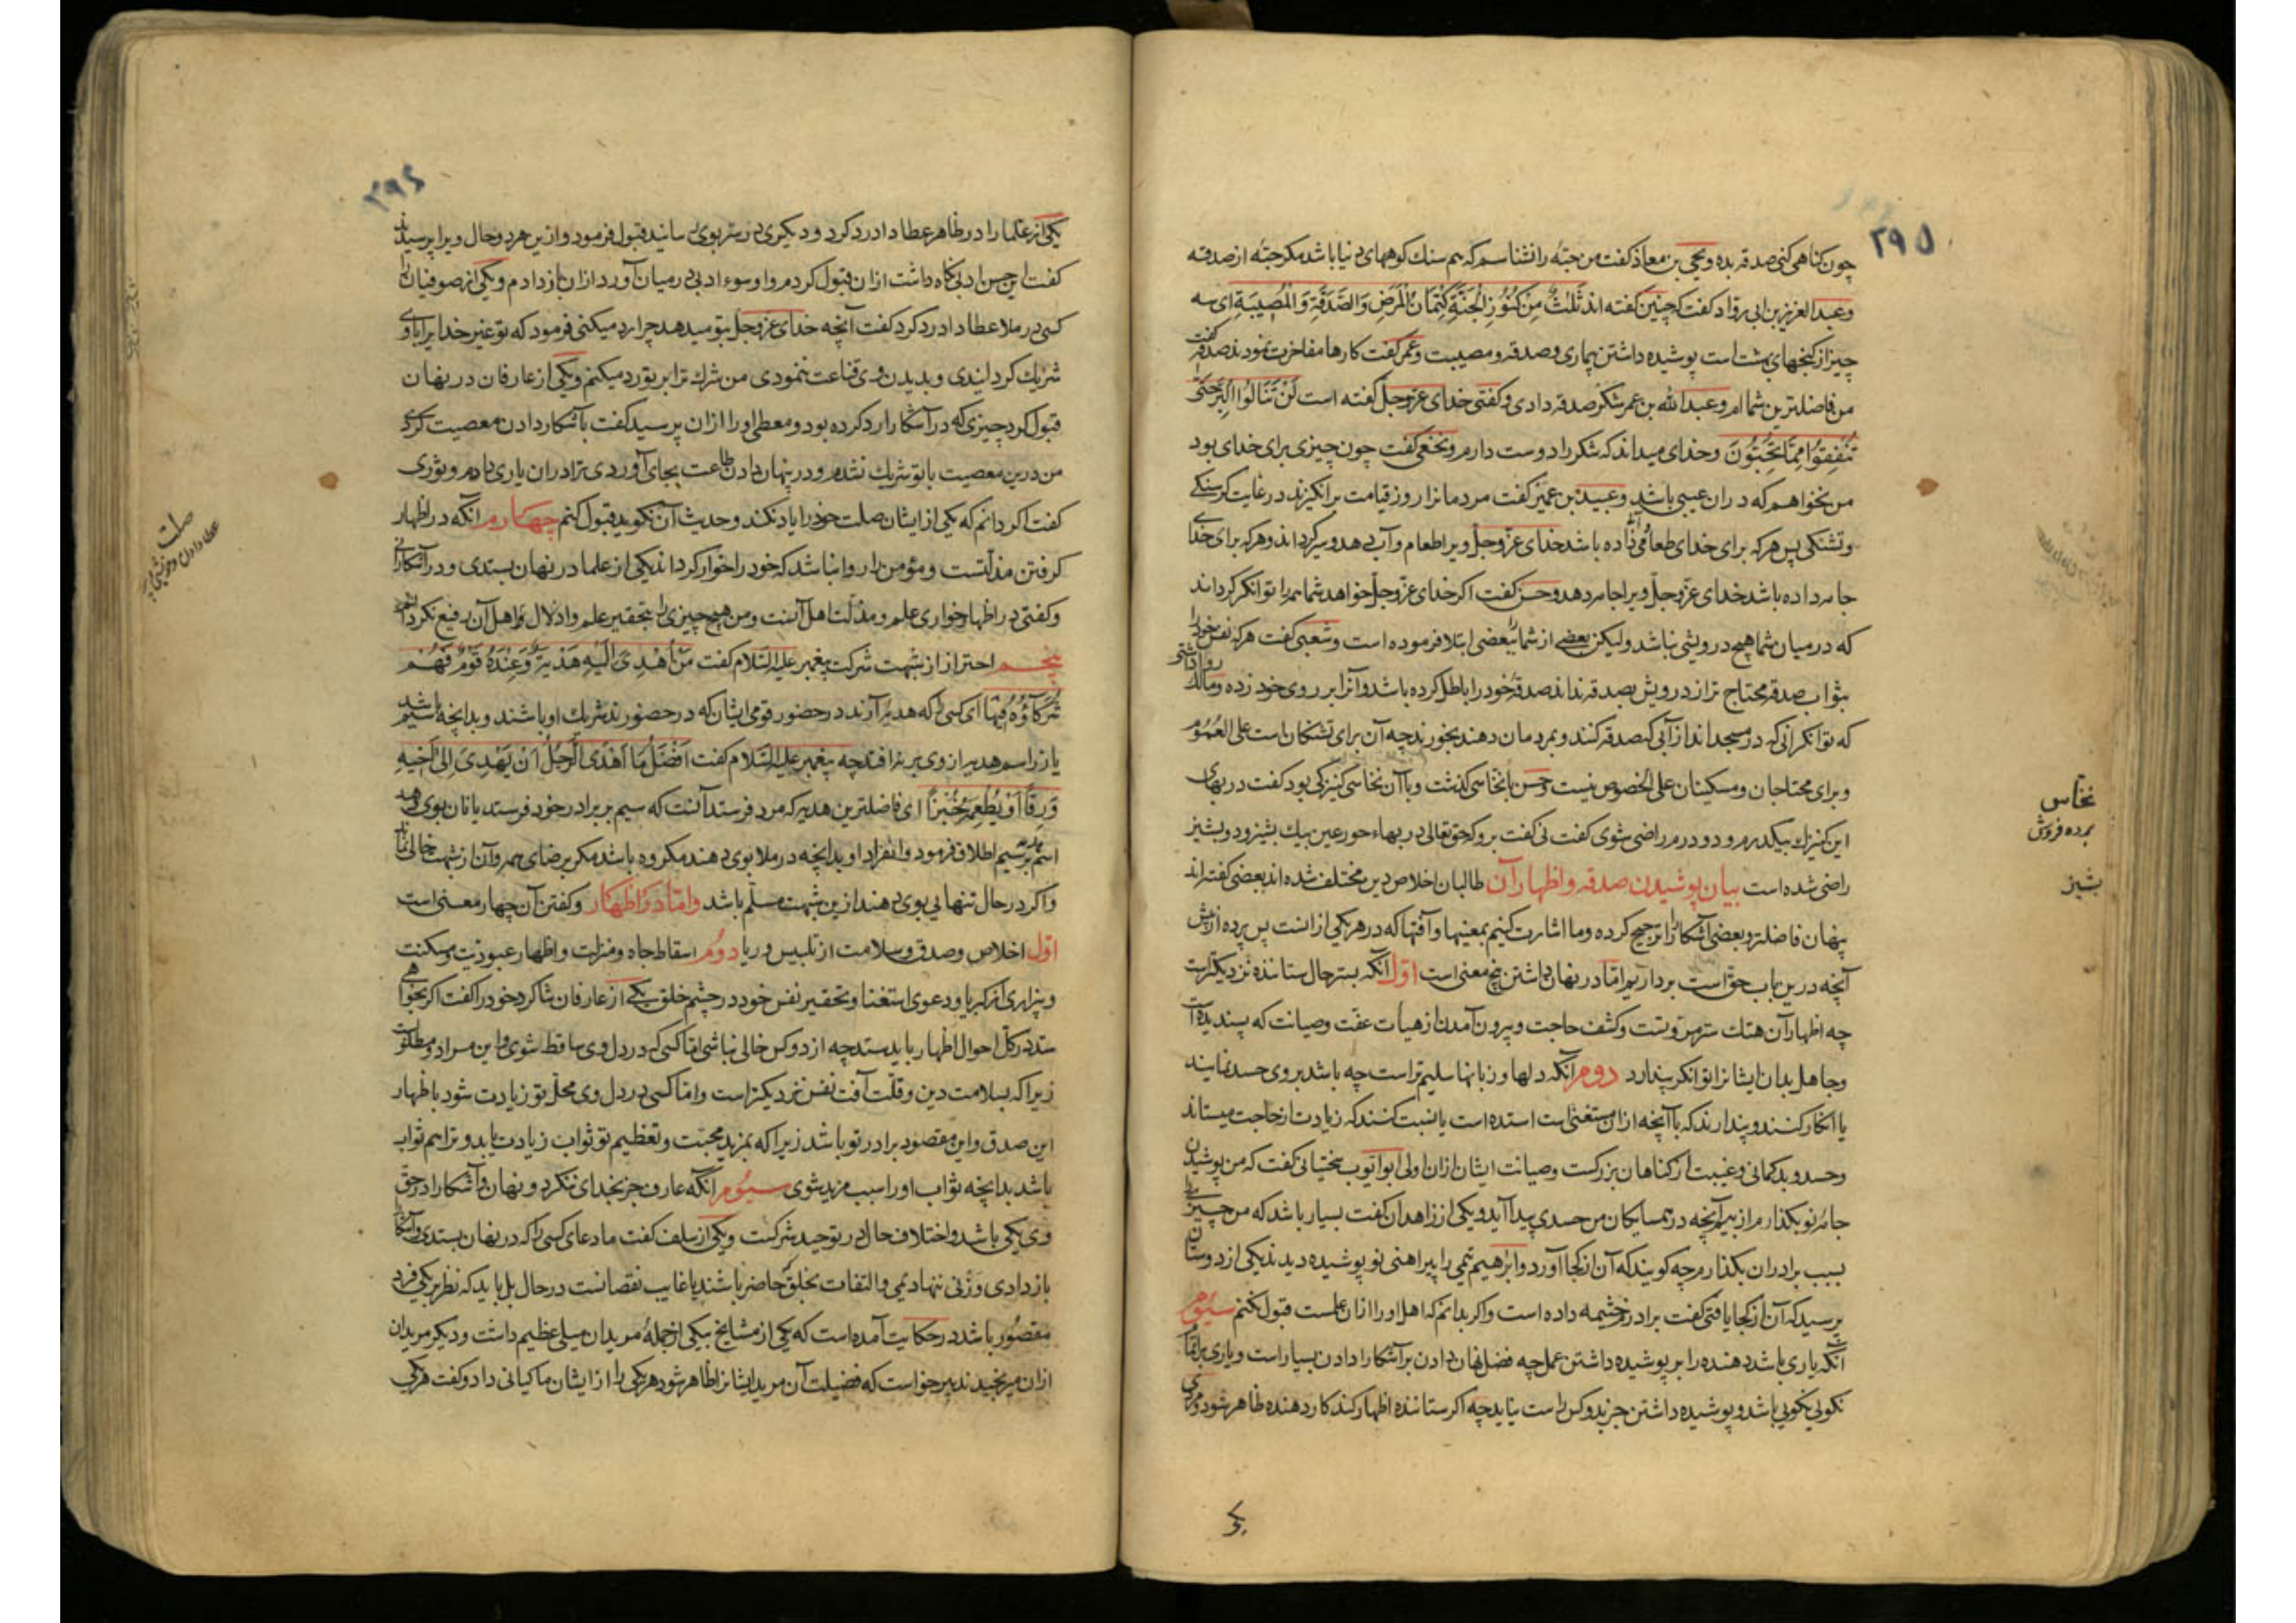 ۲۹۵
چون کناهی کنی صدقه بده و یحیی بن معاذ کفت من حبّه را نشناسم که هم سنک کوههای دنیا باشد مکر حبّه از صدقه
وعبد العزیز بن ابی روّاد کفت که چنین کفته اند ثَلٰثٌ مِنْ کُنُوزِ الْجَنَّةِ کِتْمَانُ الْمَرَضِ وَالصَّدَقَةِ وَالْمُصِیبَةِ ای سه
چیز از کنجهای بهشت است پوشیده داشتن بیماری و صدقه و مصیبت و عمر کفت کارها مفاخرت نمودند صدقه کفت
من فاضلترین شماام و عبد الله بن عمر شکر صدقه دادی و کفتی خدای عزّوجلّ کفته است لَنْ تَنَالُوا الْبِرَّ حَتّٰی
تُنْفِقُوا مِمَّا تُحِبُّونَ و خدای میداند که شکر را دوست دارم و نخعی کفت چون چیزی برای خدای بود
من نخواهم که در ان عیبی باشد و عبید بن عمیر کفت مردمانرا روز قیامت برانکیزند در غایت کرسنکی
و تشنکی پس هرکه برای خدای طعامی داده باشد خدای عزّوجلّ ویرا طعام و آب دهد و سیر کرداند و هرکه برای خدای
جامه داده باشد خدای عزّوجلّ ویرا جامه دهد و حسن کفت اکر خدای عزّوجلّ خواهد شما همه را توانکر کرداند
که در میان شما هیچ درویشی نباشد و لیکن بعضی از شما را ببعضی ابتلا فرموده است و شعبی کفت هرکه نفس خود را
بثواب صدقه محتاج تر از درویش بصدقه نداند صدقهٔ خود را باطل کرده باشد و آنرا بر روی خود زده و مالک روا داشتی
که توانکرانی که در مسجد اند از آبی که صدقه کنند و بمردمان دهند بخورند چه آن برای تشنکان است علی العموم
و برای محتاجان و مسکینان علی الخصوص نیست و حسن با نخّاسی کذشت و با آن نخاسی کنیزکی بود کفت در بهای
این کنیزک بیکدرم و دو درم راضی شوی کفت نی کفت برو که حق تعالی در بهاء حور عین بیک بشیز و دو بشیز
راضی شده است بیان پوشیدن صدقه و اظهار آن طالبان اخلاص دین مختلف شده اند بعضی کفته اند
پنهان فاضلتر و بعضی آشکارا را ترجیح کرده و ما اشارت کنیم بمعنیها و آفتها که در هر یکی از انست پس پرده از پیش
آنچه درین باب حقّ است برداریم امّا در نهان داشتن پنج معنی است اوّل آنکه بستر حال ستاننده نزدیکترست
چه اظهار آن هتک ستر مروّتست و کشف حاجت و بیرون آمدن از هیأت عفّت و صیانت که پسندیده است
و جاهل بدان ایشانرا توانکر پندارد دوم آنکه دلها و زبانها سلیم تر است چه باشد بر وی حسد نمایند
یا انکار کنند و پندارند که با آنچه از ان مستغنی است استده است یا نسبت کنند که زیادت از حاجت میستاند
و حسد و بدکمانی و غیبت از کناهان بزرکست و صیانت ایشان از ان اولی ابو ایّوب سختیانی کفت که من پوشیدن
جامهٔ نو بکذارم از بیم آنچه در همسایکان من حسدی پیدا آید و یکی از زاهدان کفت بسیار باشد که من چیزی
بسبب برادران بکذارم چه کویند که آن از کجا آورد و ابرٰهیم تیمی را پیراهنی نو پوشیده دیدند یکی از دوستان
پرسید که آن از کجا یافتی کفت برادرم خثیمه داده است و اکر بدانم که اهل او را از ان علمست قبول نکنم سیوم
آنکه یاری باشد دهنده را بر پوشیده داشتن عمل چه فضل نهان دادن بر آشکارا دادن بسیار است و یاری بر اتمام
نکویی نکویی باشد و پوشیده داشتن جز بدو کس راست نیاید چه اکر ستاننده اظهار کند کار دهنده ظاهر شود و مردی
نخّاس
برده فروش
بشیز
یکی
۲۹۶
یکی از علما را در ظاهر عطا داد رد کرد و دیکری در ستر بوی رسانید قبول فرمود و ازین هر دو حال ویرا پرسیدند
کفت این حسن ادب نکاه داشت ازان قبول کردم و او سوء ادب در میان آورد ازان باز دادم و یکی از صوفیان را
کسی در ملا عطا داد رد کرد کفت آنچه خدای عزّوجلّ بتو میدهد چرا رد میکنی فرمود که تو غیر خدایرا با وی
شریک کردانیدی و بدیدن وی قناعت ننمودی من شرک ترا بر تو رد میکنم و یکی از عارفان در نهان
قبول کرد چیزی که در آشکارا رد کرده بود و معطی او را ازان پرسید کفت باشکارا دادن معصیت کردی
من درین معصیت با تو شریک نشدم و در پنهان دادن طاعت بجای آوردی ترا دران یاری دادم و ثوری
کفت اکر دانم که یکی از ایشان صلت خود را یاد نکند و حدیث آن نکوید قبول کنم چهارم آنکه در اظهار
کرفتن مذلّتست و مؤمن را روا نباشد که خود را خوار کرداند یکی از علما در نهان بستدی و در آشکارا نی
و کفتی در اظهار خواری علم و مذلّت اهل آنست و من هیچ چیزی را بتحقیر علم و اذلال اهل آن رفیع نکردانم
پنجم احتراز از شبهت شرکت پیغمبر علیه السّلام کفت مَنْ اُهْدِیَ اِلَیْهِ هَدِیَّةٌ وَعِنْدَهُ قَوْمٌ فَهُمْ
شُرَکَاؤُهُ فِیهَا ای کسی را که هدیه آرند در حضور قومی ایشان که در حضورند شریک او باشند و بدانچه سیم باشد
یا زر اسم هدیه از وی بر نیفتد چه پیغمبر علیه السّلام کفت اَفْضَلُ مَا اَهْدَی الرَّجُلُ اَنْ یَهْدِیَ اِلٰی اَخِیهِ
وَرِقاً اَوْ یُطْعِمَهُ خُبْزاً ای فاضلترین هدیه که مرد فرستد آنست که سیم بر برادر خود فرستد یا نان بوی دهد
اسم هدیه بر سیم اطلاق فرمود و انفراد او بدانچه در ملا بوی دهند مکروه باشد مکر برضای همه و آن از شبهت خالی نماند
و اکر در حال تنهایی بوی دهند ازین شبهت مسلّم باشد و امّا در اظهار و کفتن آن چهار معنی است
اوّل اخلاص و صدق و سلامت از تلبیس و ریا دوم اسقاط جاه و منزلت و اظهار عبودیّت و مسکنت
و بیزاری از کبریا و دعوی استغنا و تحقیر نفس خود در چشم خلق یکی از عارفان شاکرد خود را کفت اکر بخواهی
ستد در کل احوال اظهار باید ستد چه از دو کس خالی نباشی امّا کسی که در دل وی ساقط شوی و این مراد و مطلوبست
زیرا که بسلامت دین و قلّت آفت نفس نزدیکتر است و امّا کسی در دل وی محلّ تو زیادت شود باظهار
این صدق و این مقصود برادر تو باشد زیرا که بمزید محبّت و تعظیم تو ثواب زیادت یابد و ترا هم ثواب
باشد بدانچه ثواب او را سبب مزید شوی سیوم آنکه عارف جز بخدای ننکرد و نهان و آشکارا در حقّ
وی یکی باشد و اختلاف حال در توحید شرکست و یکی از سلف کفت ما دعای کسی را که در نهان بستدی و آشکارا
باز دادی وزنی ننهادیمی و التفات بخلق که حاضر باشند یا غایب نقصانست در حال بل باید که نظر بر یکی فرد
مقصُور باشد در حکایت آمده است که یکی از مشایخ بیکی از جملهٔ مریدان میلی عظیم داشت و دیکر مریدان
ازان میرنجیدند پیر خواست که فضیلت آن مرید ایشانرا ظاهر شود هر یکی را از ایشان ماکیانی داد و کفت هر یکی
صلت